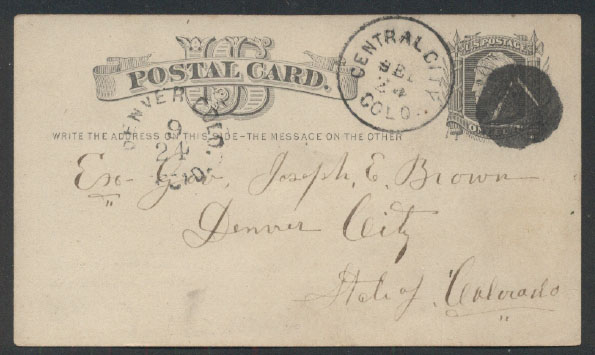 US
POSTAL CARD.
U.S. POSTAGE
CENTRAL CITY
24
COLO.
DENVER
9
24
WRITE THE ADDRESS ON THIS SIDE-THE MESSAGE ON THE OTHER
Ex-Gov. Joseph E. Brown
Denver City
State of Colorado